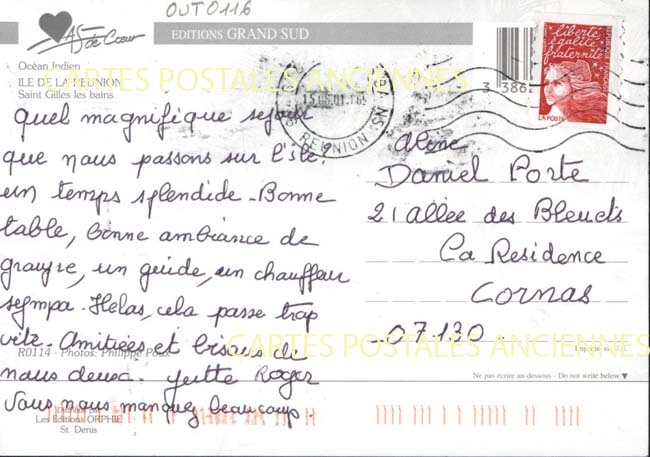 OUT0116
As de Cœur
EDITIONS GRAND SUD
Océan Indien
ILE DE LA REUNION
Saint Gilles les bains
CARTES POSTALES ANCIENNES
liberté
égalité
fraternité
LA POSTE
REUNION
Quel magnifique sejour
que nous passons sur l'île!
un temps splendide - Bonne
table, bonne ambiance de
groupe, un guide, un chauffeur
sympa. Helas, cela passe trop
vite. Amitiées et bisous de
nous deux. Yette Roger
Vous nous manquez beaucoup.
Aline
Daniel Porte
21 allée des Bleuets
La Residence
Cornas
07.130.
CARTES POSTALES ANCIENNES
R0114 - Photos: Philippe Poux
Ne pas écrire au-dessous - Do not write below
Distribué par
Les Editions ORPHIE
St. Denis